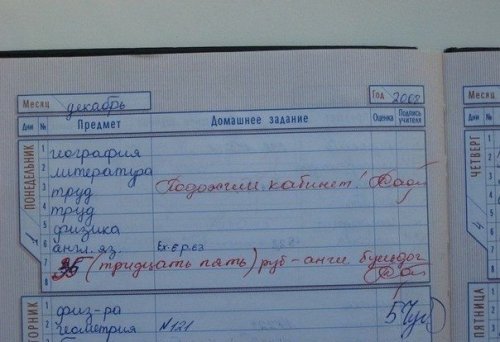 Месяц декабрь Год 2008
Дни № Предмет Домашнее задание Оценка Подпись учителя
ПОНЕДЕЛЬНИК 1
1 география
2 литература
3 труд Подожгли кабинет!
4 труд
5 физика
6 англ. яз. Ex 5 p. 63
7 35 (тридцать пять) руб - англ.
8
ВТОРНИК
1 физ-ра 5
2 геометрия №121
Месяц
Дни №
ЧЕТВЕРГ 4
1
2
3
4
5
6
7
8
ПЯТНИЦА
1
2
3